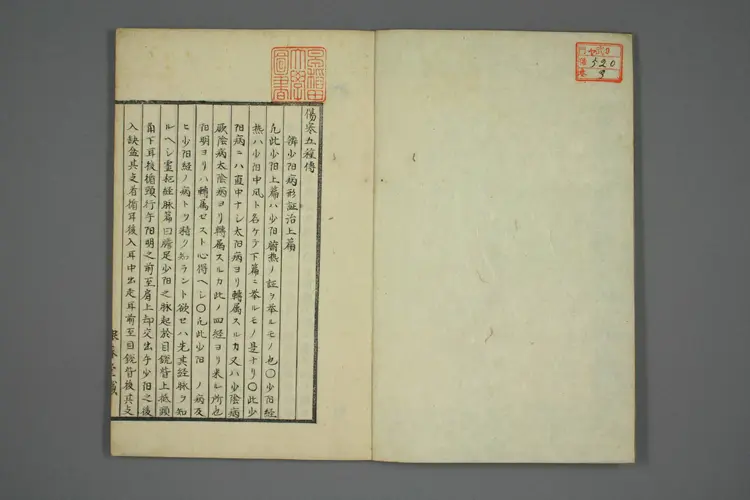 傷寒五種傳
辨少阳病形証治上篇
凢此少阳上篇ハ少阳腑熱ノ証ヲ挙ルモノ也〇少阳経
熱ハ少阳中风ト名ケテ下篇ニ挙ルモノ是ナリ〇此少
阳病ニハ直中ナシ太阳病ヨリ轉属スルカ又ハ少陰病
厥陰病太陰病ヨリ轉属スルカ此ノ四経ヨリ来ル所也
阳明ヨリハ轉属セスト心得ヘシ〇凢此少阳ノ病及
ヒ少阳経ノ病トヲ精ク知ラント欲セハ先其経脉ヲ知
ルヘシ霊枢経脉篇曰膽足少阳之脉起於目鋭眥上抵頭
角下耳後循頸行手阳明之前至肩上却交出手少阳之後
入缺盆其支者循耳後入耳中出走耳前至目鋭眥後其支
早稻田大學圖書
520
3